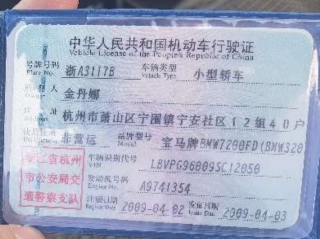 中华人民共和国机动车行驶证
Vehicle License of the People's Republic of China
号牌号码 浙A3117B 车辆类型 小型轿车
Plate No. Vehicle Type
金丹娜
杭州市萧山区宁围镇宁安社区12组40户
非营运 品牌型号 宝马牌BMW7200FD(BMW320
浙江省杭州 车辆识别代号 LBVPG96009SC12050
VIN
市公安局交 发动机号码 A9741354
Engine No.
通警察支队 注册日期 2009-04-02 发证日期 2009-04-03
Register Date Issue Date